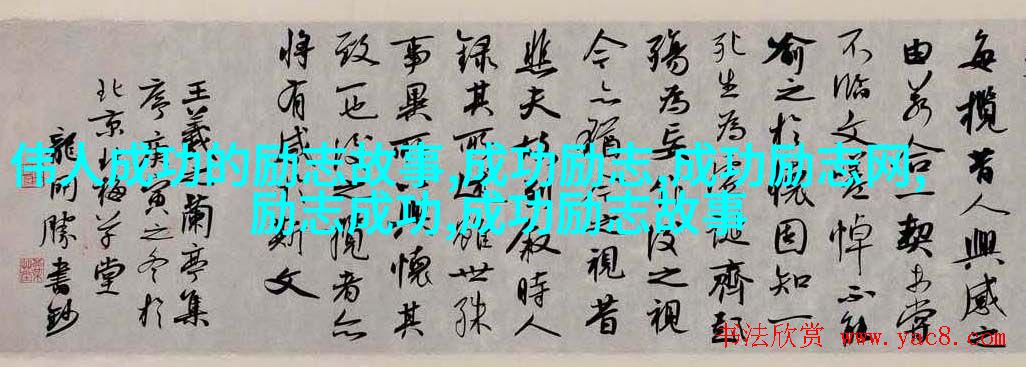 每攬昔人興感之
由若合一契未嘗
不臨文嗟悼不能
喻之於懷固知一
死生為虛誕齊彭
殤為妄作後之視
今亦猶今之視昔
悲夫故列敘時人
錄其所述雖世殊
事異所以興懷其
致一也後之攬者亦
將有感於斯文
王羲之蘭亭集
序庚寅之冬於
北京梅草堂
龍開勝書鈔
伟人成功的励志故事,成功励志,成功励志网,
励志成功,成功励志故事
书法欣赏 www.yac8.com